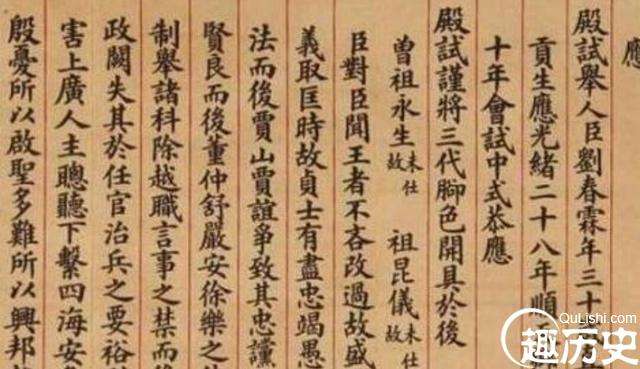 應
殿試舉人臣劉春霖年三十
貢生應光緒二十八年順
十年會試中式恭應
殿試謹將三代腳色開具於後
曾祖永生未仕故 祖昆儀未仕故
臣對臣聞王者不吝改過故盛
義取匡時故貞士有盡忠竭愚
法而後賈山賈誼爭致其忠讜
賢良而後董仲舒嚴安徐樂之
制舉諸科除越職言事之禁而
政闕失其於任官治兵之要裕
害上廣人主聰聽下繫四海安
殷憂所以啟聖多難所以興邦
QuLishi.com
趣历史